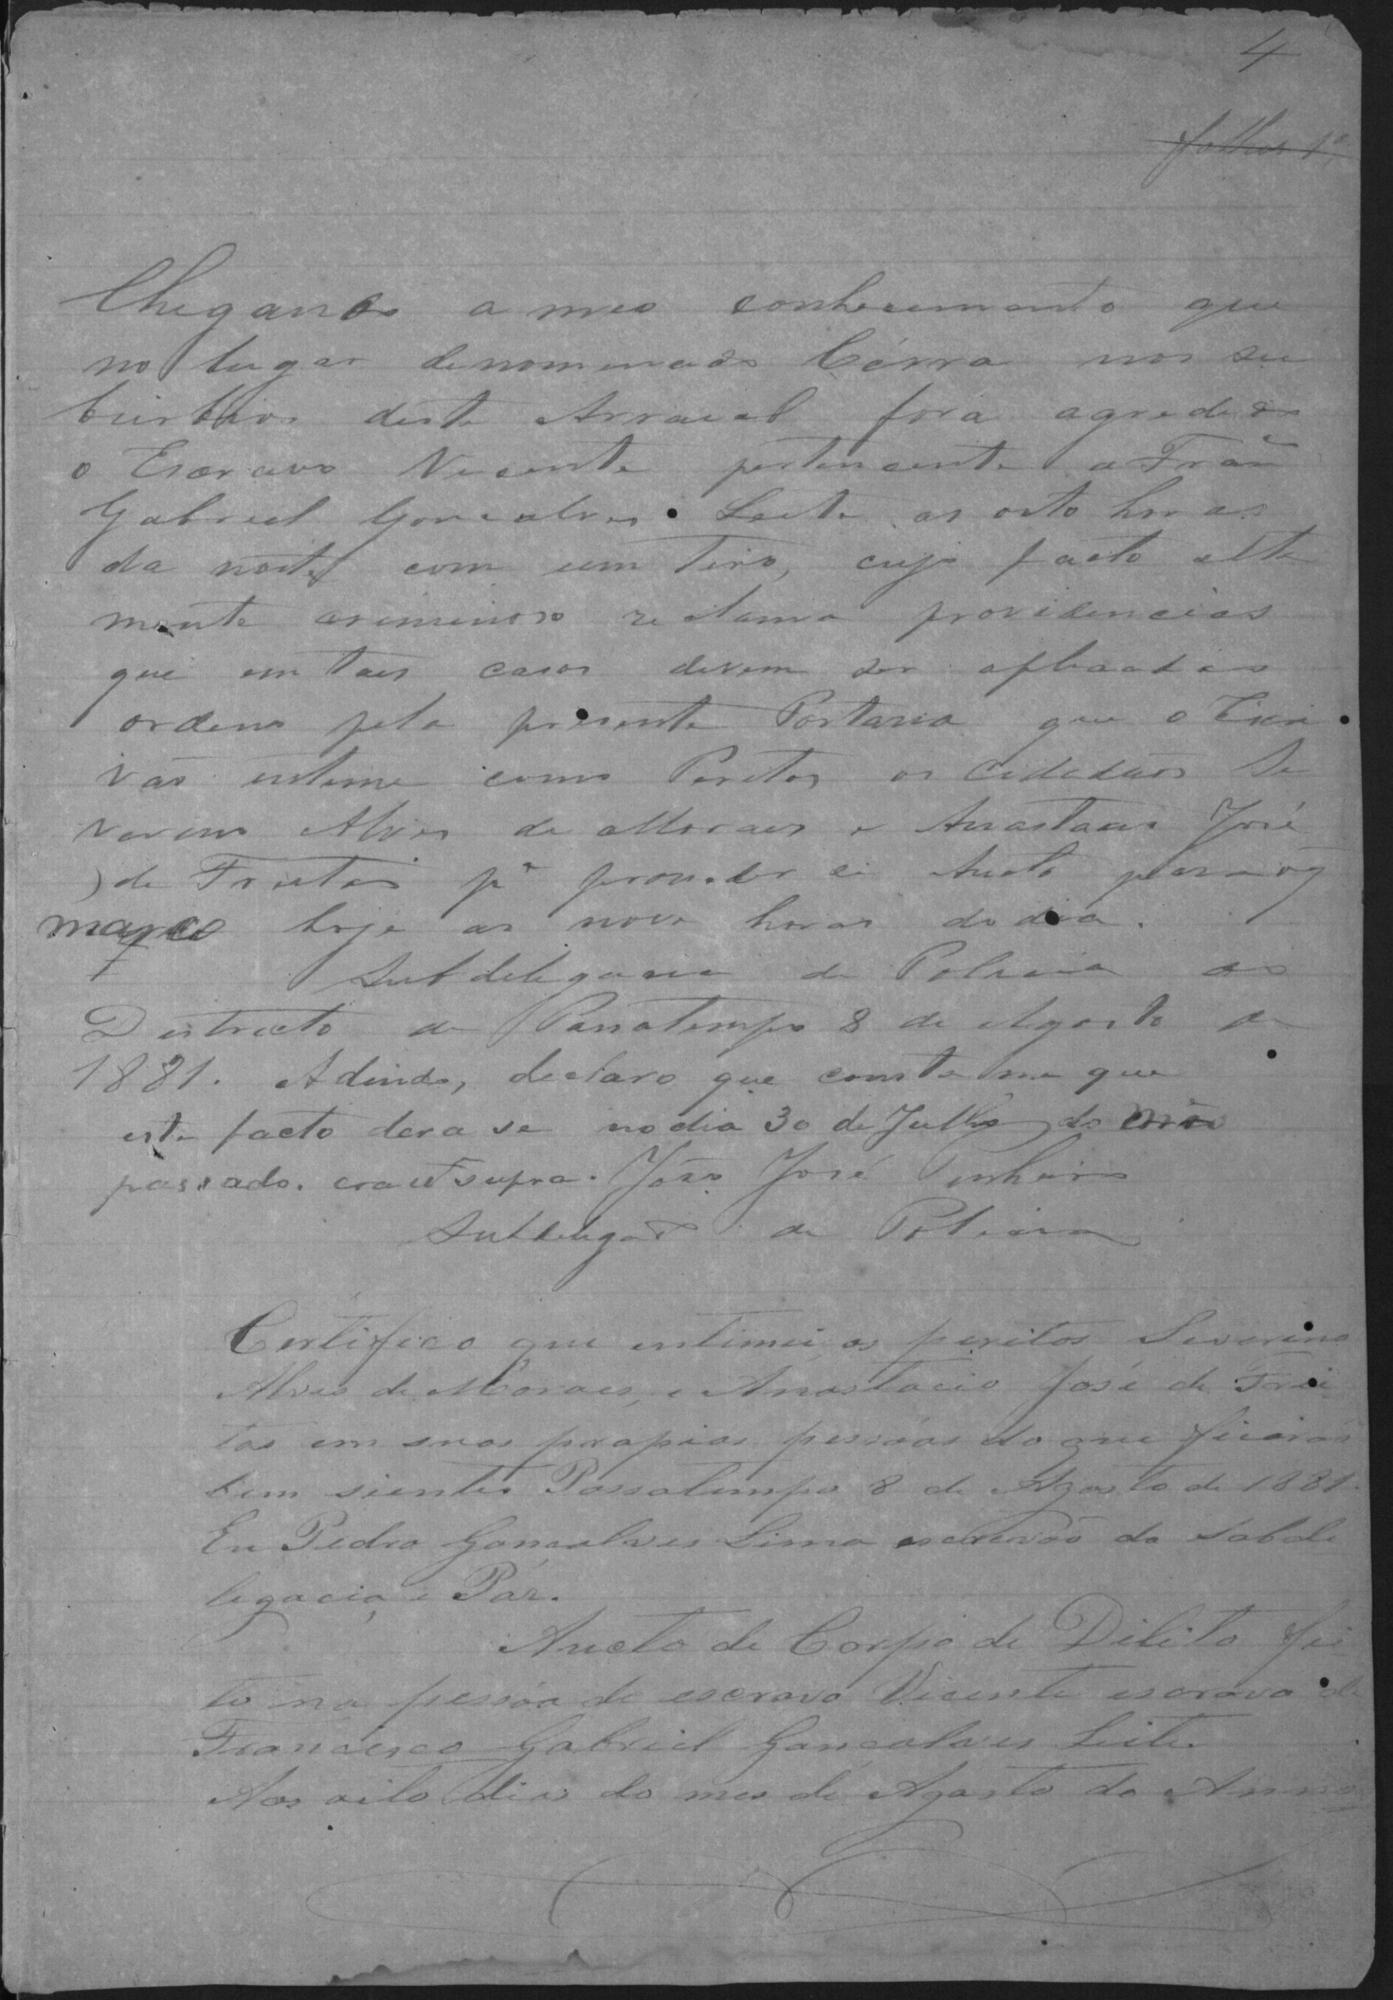 4
folhas 1ª
Chegando a meo conhecimento que
no lugar denominado Cérra nos su
burbios deste Arraial fora agredido
o Escravo Vicente pertencente a Fran
Gabriel Gonçalves Leite as oito horas
da noite com um tiro, cujo facto alta
mente criminoso reclama providencias
que em taes casos devem ser aplicadas
ordeno pela presente Portaria que o Escri
vão intime como Peritos os Cidadãos Se
verino Alves de Moraes e Anastacio José
de Freitas pª proceder ei Aucto para o q
marco hoje as nove horas do dia.
Subdelegacia de Policia do
Destricto de Passatempo 8 de Agosto de
1881. Adindo, declaro que consta me que
este facto dera se no dia 30 de Julho do mês
passado. era ut supra. João José Pinheiro
Subdelegado de Policia
Certifico que intimei os peritos Severino
Alves de Moraes, e Anastacio José de Frei
tas em suas propias pessôas do que ficarão
bem sientes Passatempo 8 de Agosto de 1881.
Eu Pedro Gonsalves Lima escrevão da Sabde
legacia e Páz.
Aucto de Corpo de Dilito fei
to na pessôa do escravo Vicente escravo de
Francisco Gabriel Gonçalves Leite.
Aos oito dias do mes de Agosto do Anno